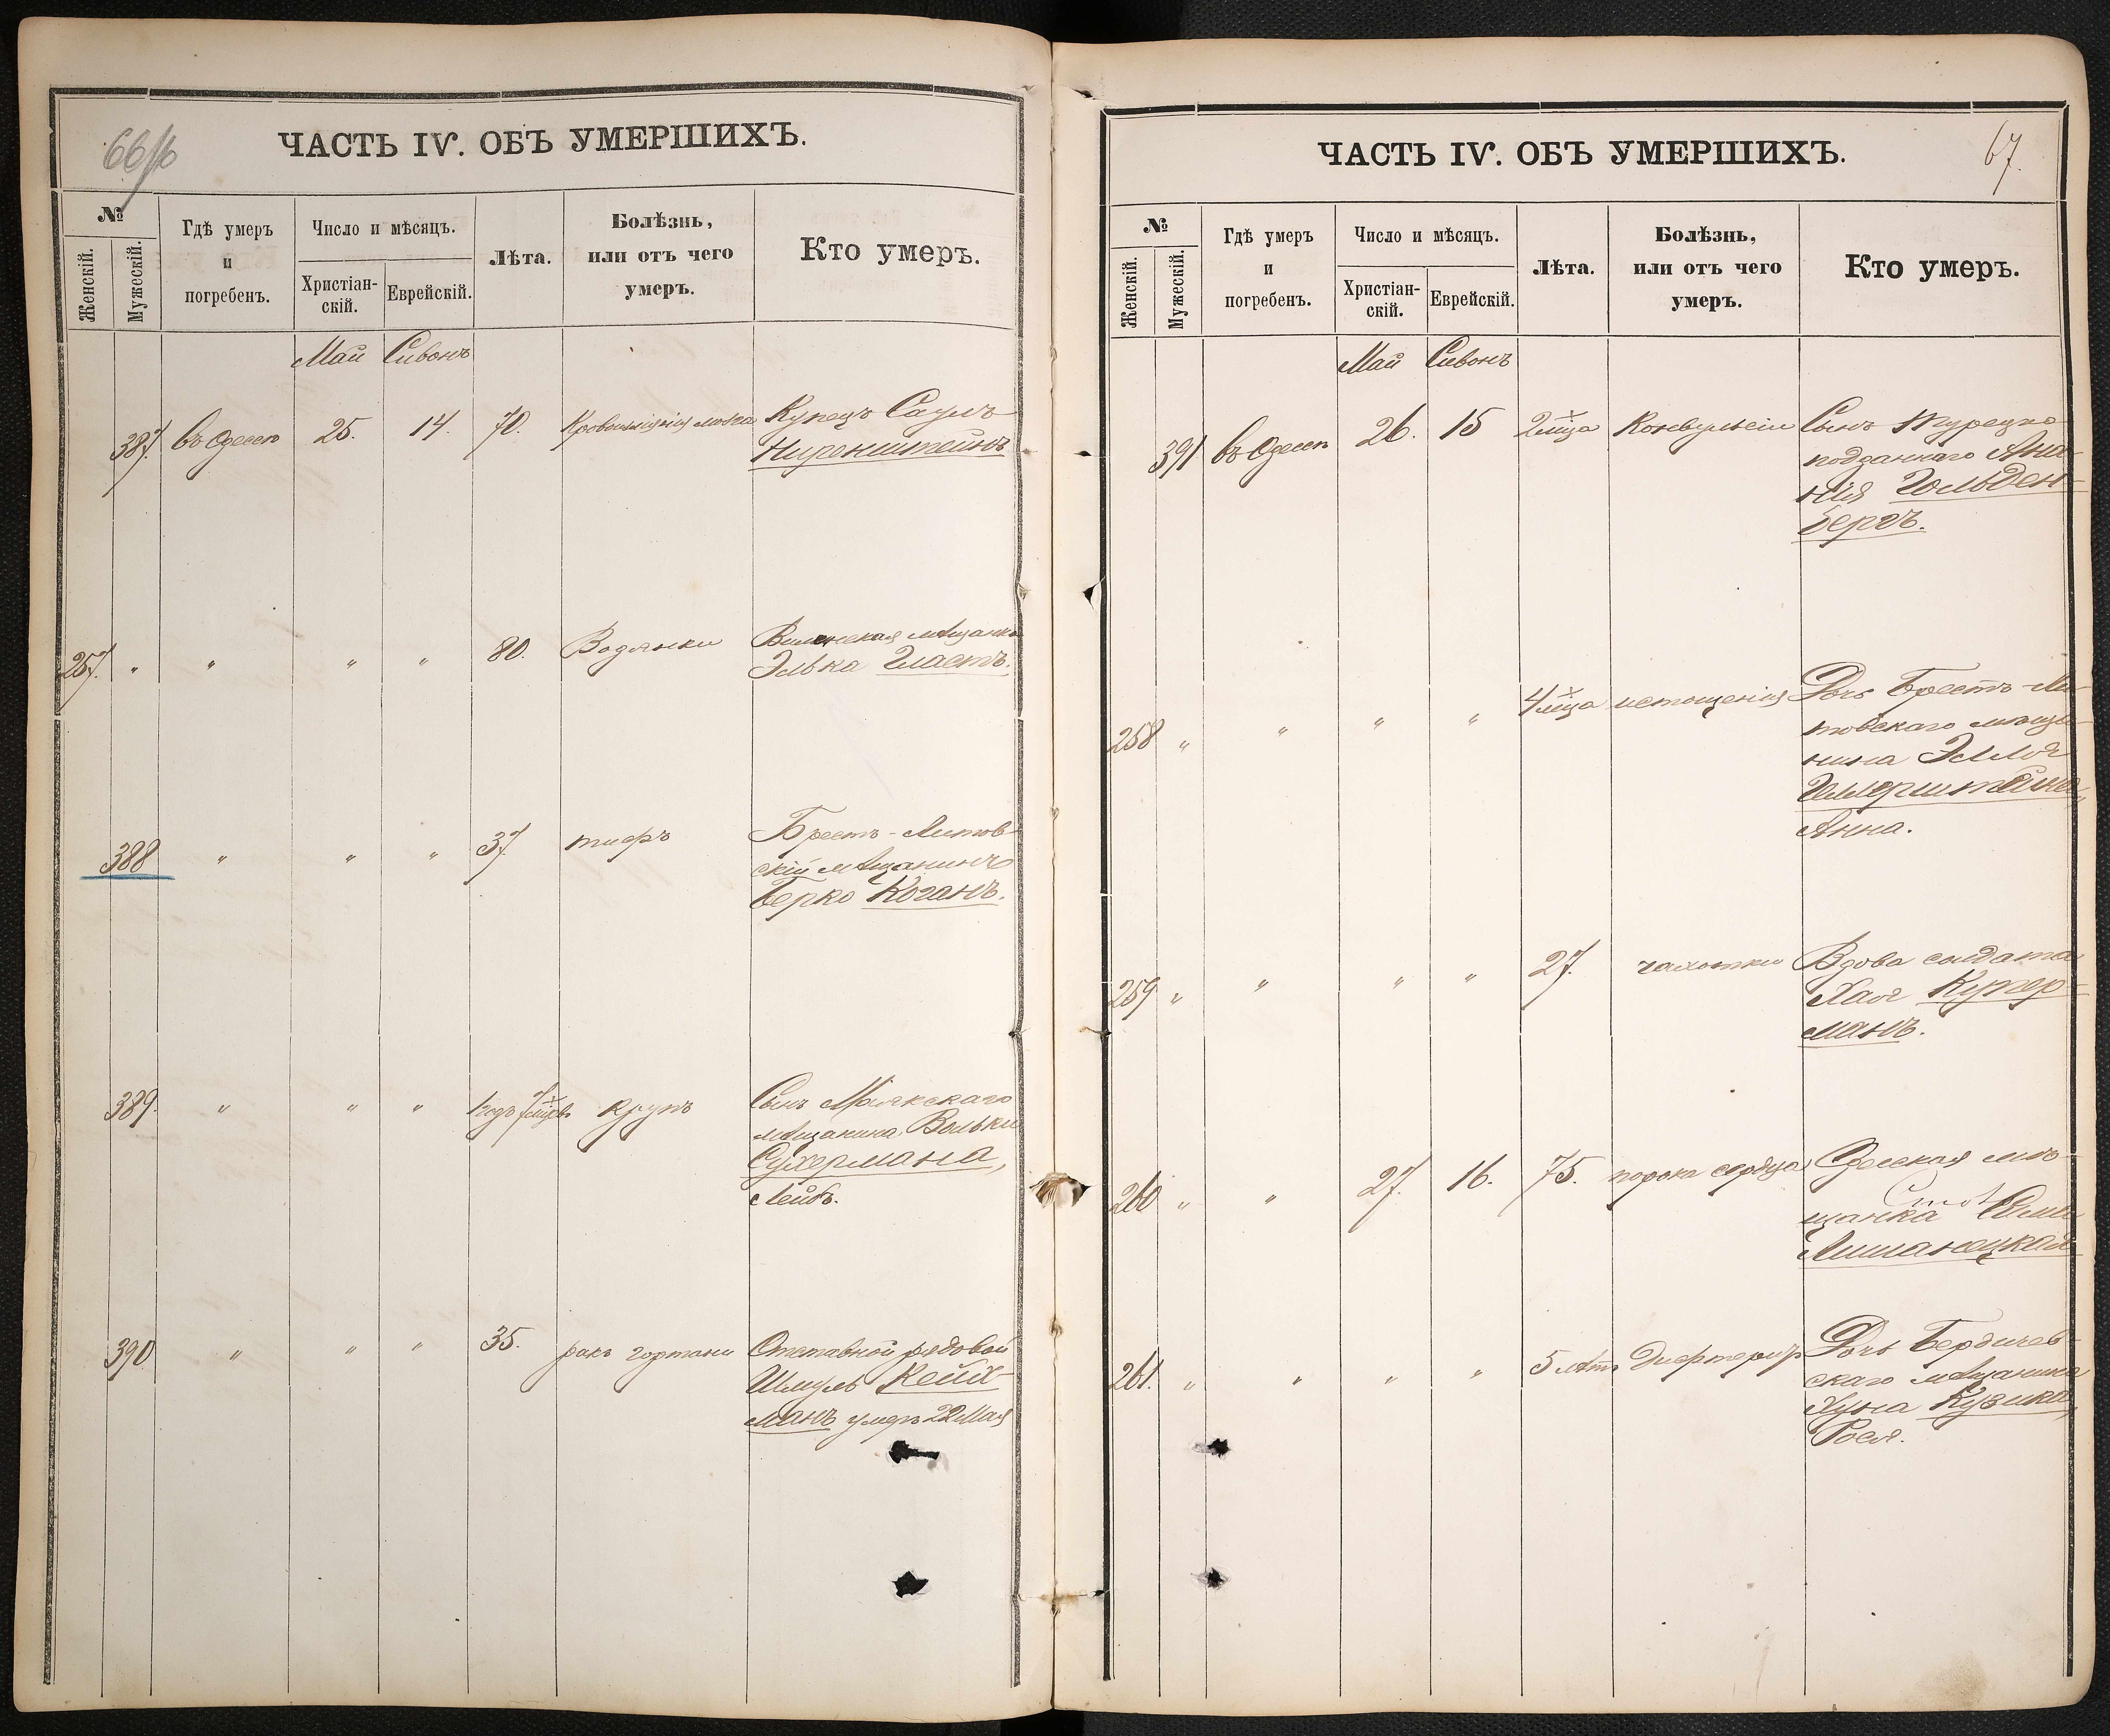 66 об
ЧАСТЬ IV. ОБЪ УМЕРШИХЪ.
№
Женскій.
Мужескій.
Гдѣ умеръ
и
погребенъ.
Число и мѣсяцъ.
Христіан-
скій.
Еврейскій.
Лѣта.
Болѣзнь,
или отъ чего
умеръ.
Кто умеръ.
Май Сивонъ
387. въ Одессѣ 25. 14. 70. мозга Купецъ Саулъ
Ниренштейнъ
257. " " " " 80. Водянки мѣщанка
Элька Гластъ.
388 " " " 37. тифъ Брестъ-Литов-
скій мѣщанинъ
Берко Коганъ.
389. " " " 1 годъ 7 мѣс. крупъ Сынъ Маякскаго
мѣщанина Вольки
Сухермана,
Лейбъ.
390 " " " 35. ракъ гортани Отставной рядовой
Шмуль Кейх-
манъ умеръ 22 Мая
67.
ЧАСТЬ IV. ОБЪ УМЕРШИХЪ.
№
Женскій.
Мужескій.
Гдѣ умеръ
и
погребенъ.
Число и мѣсяцъ.
Христіан-
скій.
Еврейскій.
Лѣта.
Болѣзнь,
или отъ чего
умеръ.
Кто умеръ.
Май Сивонъ
391 въ Одессѣ 26. 15 2 мѣсͯца Конвульсіи Сынъ турецко-
подданнаго Ана-
нія Гольден-
бергъ.
258 " " " " 4 мѣсͯца истощенія Дочь Брестъ-Ли-
товскаго мѣща-
нина
Анна.
259 " " " " 27. чахотки Вдова солдата
Хая Купер-
манъ.
260 " " 27. 16. 75. порока сердца Одесская мѣ-
щанка
261. " " " " 5 лѣтъ Дифтеритъ Дочь Бердичев-
скаго мѣщанина
Хуна Кузика,
Рося.